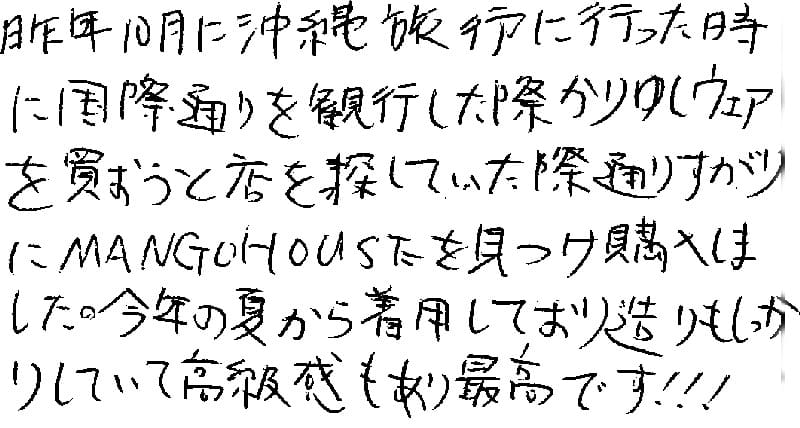 昨年10月に沖縄旅行に行った時
に国際通りを観行した際かりゆしウェア
を買おうと店を探していた際通りすがり
にMANGOHOUSEを見つけ購入しま
した。今年の夏から着用しており造りもしっか
りしていて高級感もあり最高です!!!